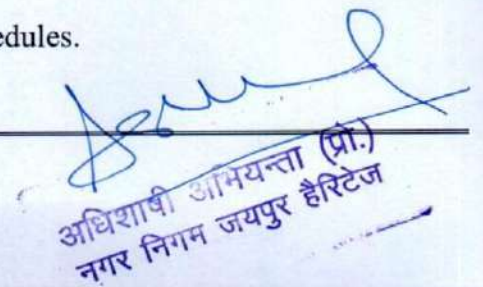 edules.
अधिशाषी अभियन्ता (प्रो.)
नगर निगम जयपुर हैरिटेज